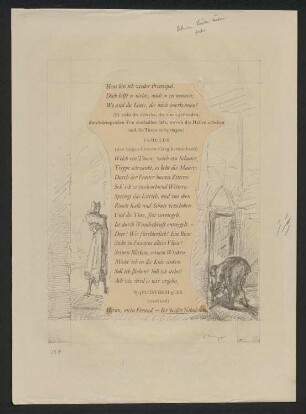 Heut bin ich wieder Prinzipal.
Doch hilft es nichts, mich so zu nennen;
Wo sind die Leute, die mich anerkennen?
(Er zieht die Glocke, die einen gellenden,
durchdringenden Ton erschallen läßt, wovon die Hallen erbeben
und die Türen aufspringen)
FAMULUS
(den langen finstern Gang herwankend)
Welch ein Tönen, welch ein Schauer!
Treppe schwankt, es bebt die Mauer;
Durch der Fenster buntes Zittern
Seh' ich wetterleuchtend Wittern.
Springt das Estrich, und von oben
Rieselt Kalk und Schutt verschoben.
Und die Türe, fest verriegelt,
Ist durch Wunderkraft entsiegelt. –
Dort! Wie fürchterlich! Ein Riese
Steht in Faustens altem Vliese!
Seinen Blicken, seinem Winken
Möcht' ich in die Kniee sinken.
Soll ich fliehen? Soll ich stehn?
Ach, wie wird es mir ergehn!
MEPHISTOPHELES
(winkend)
Heran, mein Freund! – Ihr heißet Nikodemus.